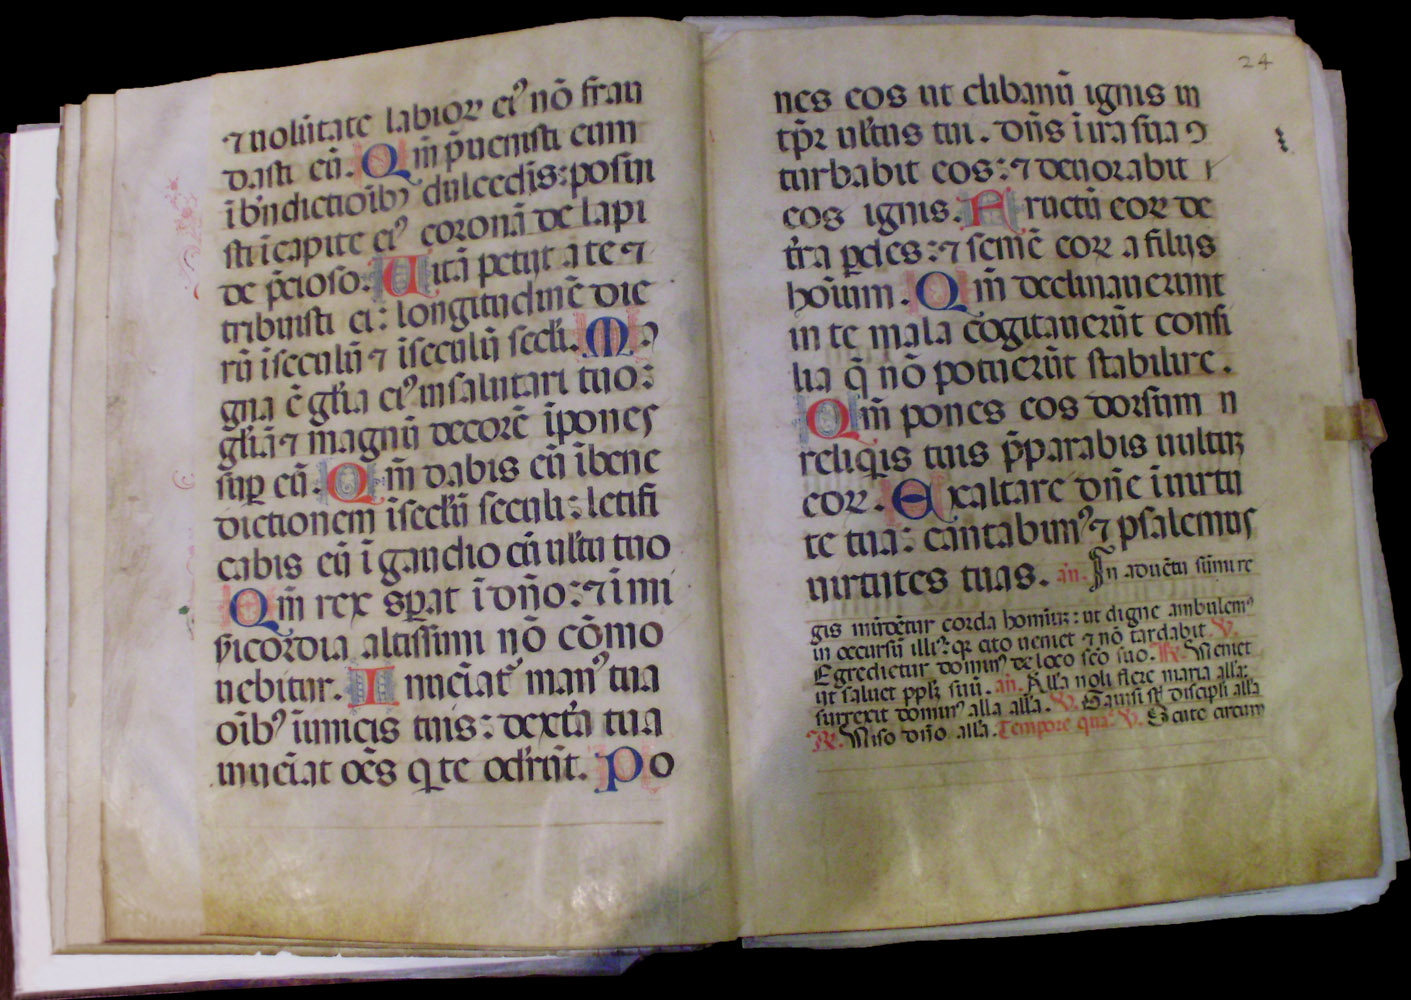 ⁊ uolũtate labioꝝ ei⁹ nõ frau
dasti eũ. Qm̃ p̃uenisti eum
ĩ bñdictiõib⁹ dulcedĩs: posui
sti ĩ capite ei⁹ coronã de lapi
de p̃cioso. Uitã petijt a te ⁊
tribuisti ei: longitudinẽ die
rũ ĩ seculũ ⁊ ĩ seculũ secĺi. Ma
gna ẽ gĺia ei⁹ in salutari tuo:
gĺiã ⁊ magnũ decorẽ ĩpones
suꝑ eũ. Qm̃ dabis eũ ĩ bene
dictionem ĩ secĺũ seculi: letifi
cabis eũ ĩ gaudio cũ uĺtu tuo
Qm̃ rex sꝑat ĩ dño: ⁊ ĩ mi
s̃icordia altissimi nõ cõmo
uebitur. Inueiat᷑ man⁹ tua
oĩb⁹ inimicis tuis: dext̃a tua
inueiat oẽs q te oderũt. Po
24
nes eos ut clibanũ ignis in
tp̃r uĺtus tui. dñs ĩ ira sua ꝯ
turbabit eos: ⁊ deuorabit
eos ignis. Fructũ eoꝝ de
t̃ra ꝑdes: ⁊ semẽ eoꝝ a filijs
hoĩum. Qm̃ declinauerunt
in te mala cogitauerũt consi
lia q̃ nõ potuerũt stabilire.
Qm̃ pones eos dorsum n
reliquis tuis p̃parabis uultũ
eoꝝ. Exaltare dñe ĩ uirtu
te tua: cantabim⁹ ⁊ psalem⁹
uirtutes tuas. añ. In aduẽtu sũmi re
gis mũdẽtur corda hominũ: ut digne ambulem⁹
in occursũ illi⁹: qꝛ cito ueniet ⁊ nõ tardabit. V.
Egredietur domin⁹ de loco sc̃o suo. R. Veniet
ut saluet ppĺm suũ. añ. Alĺa noli flere maria alĺa:
surrexit domin⁹ alĺa alĺa. V. Gauisi sũt discipĺi alĺa
R. Viso dño alĺa. Tempore qua. V. Scuto circum